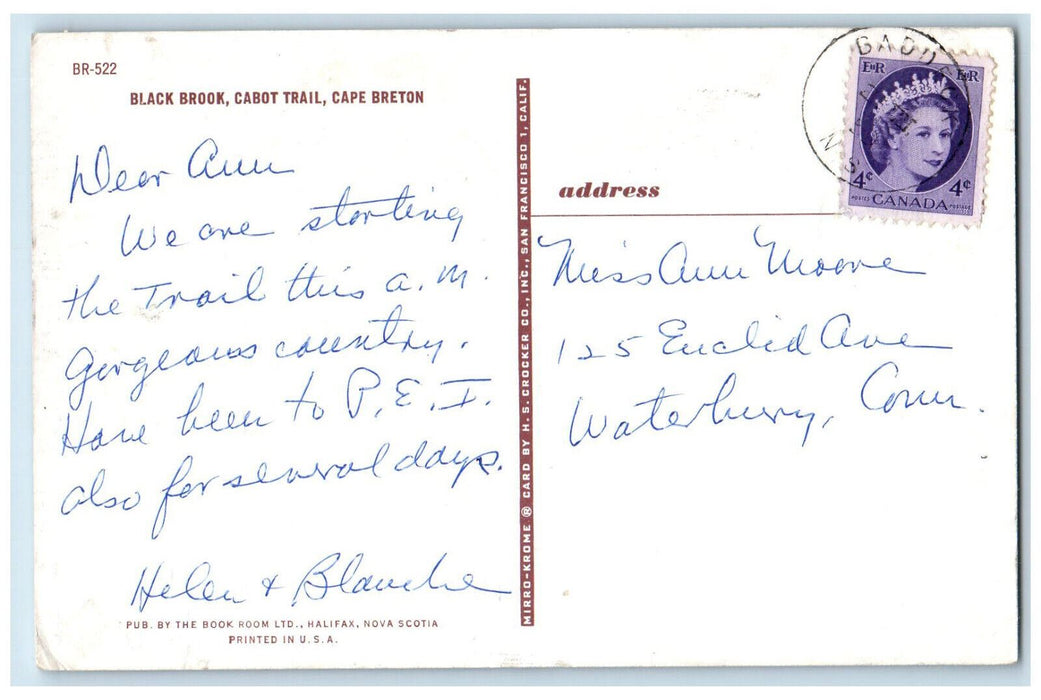 BR-522
BLACK BROOK, CABOT TRAIL, CAPE BRETON
Dear Ann
We are starting
the Trail this a.m.
Gorgeous country.
Have been to P.E.I.
also for several days.
Helen & Blanche
PUB. BY THE BOOK ROOM LTD., HALIFAX, NOVA SCOTIA
PRINTED IN U.S.A.
MIRRO-KROME ® CARD BY H. S. CROCKER CO., INC., SAN FRANCISCO 1, CALIF.
E II R E II R
4¢ 4¢
POSTES CANADA POSTAGE
N.S.
address
Miss Ann Moore
125 Euclid Ave
Waterbury, Conn.